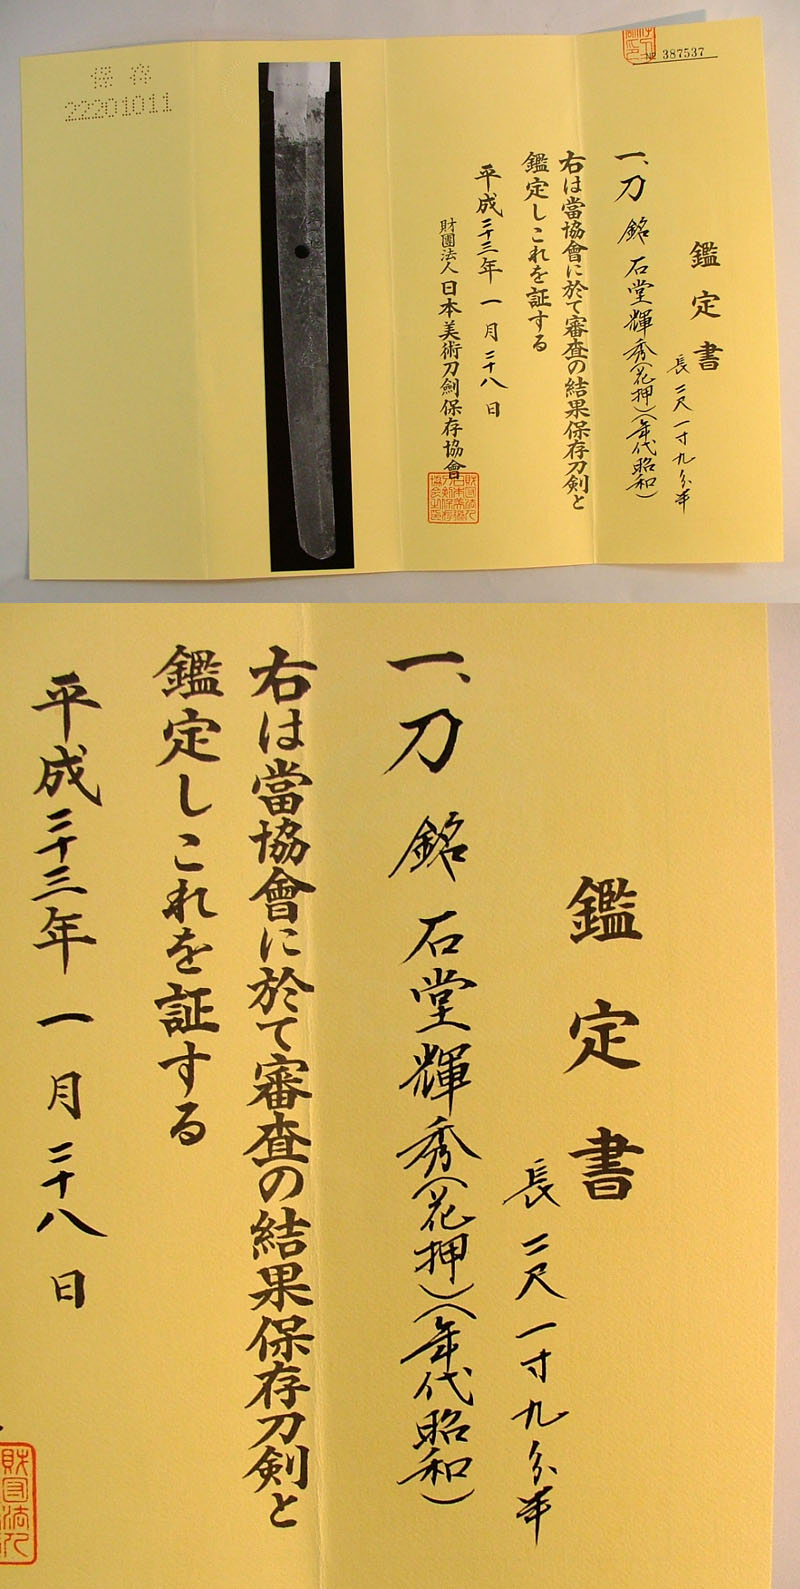 № 387537
鑑定書
長二尺一寸九分半
一、刀 銘 石堂輝秀(花押)(年代昭和)
右は當協會に於て審査の結果保存刀剣と
鑑定しこれを証する
平成二十三年 一月二十八日
財團法人 日本美術刀劍保存協會
保存
22201011
鑑定書
長二尺一寸九分半
一、刀 銘 石堂輝秀(花押)(年代昭和)
右は當協會に於て審査の結果保存刀剣と
鑑定しこれを証する
平成二十三年 一月二十八日